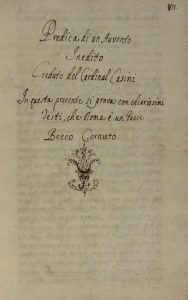 Predica di un Auvento
Inedito
Creduto del Cardinal Casini
In questa presente si prova con chiarissimi
Testi, che Roma è un Paese
Becco Cornuto